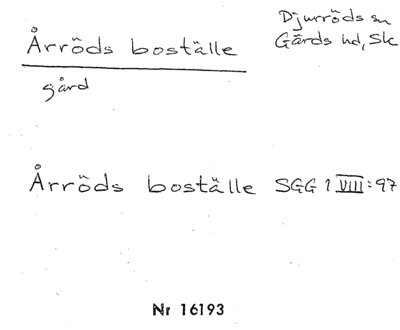 Årröds boställe
Djurröds sn
Gärds hd, Sk
gård
Årröds boställe SGG 1 VIII:97
Nr 16193